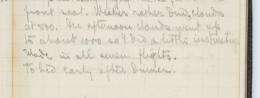 front seat. Weather rather dud, clouds
at 500. In afternoon clouds went up
to about 1000 so I did a little instructing
Made in all seven flights.
To bed early after dinner.